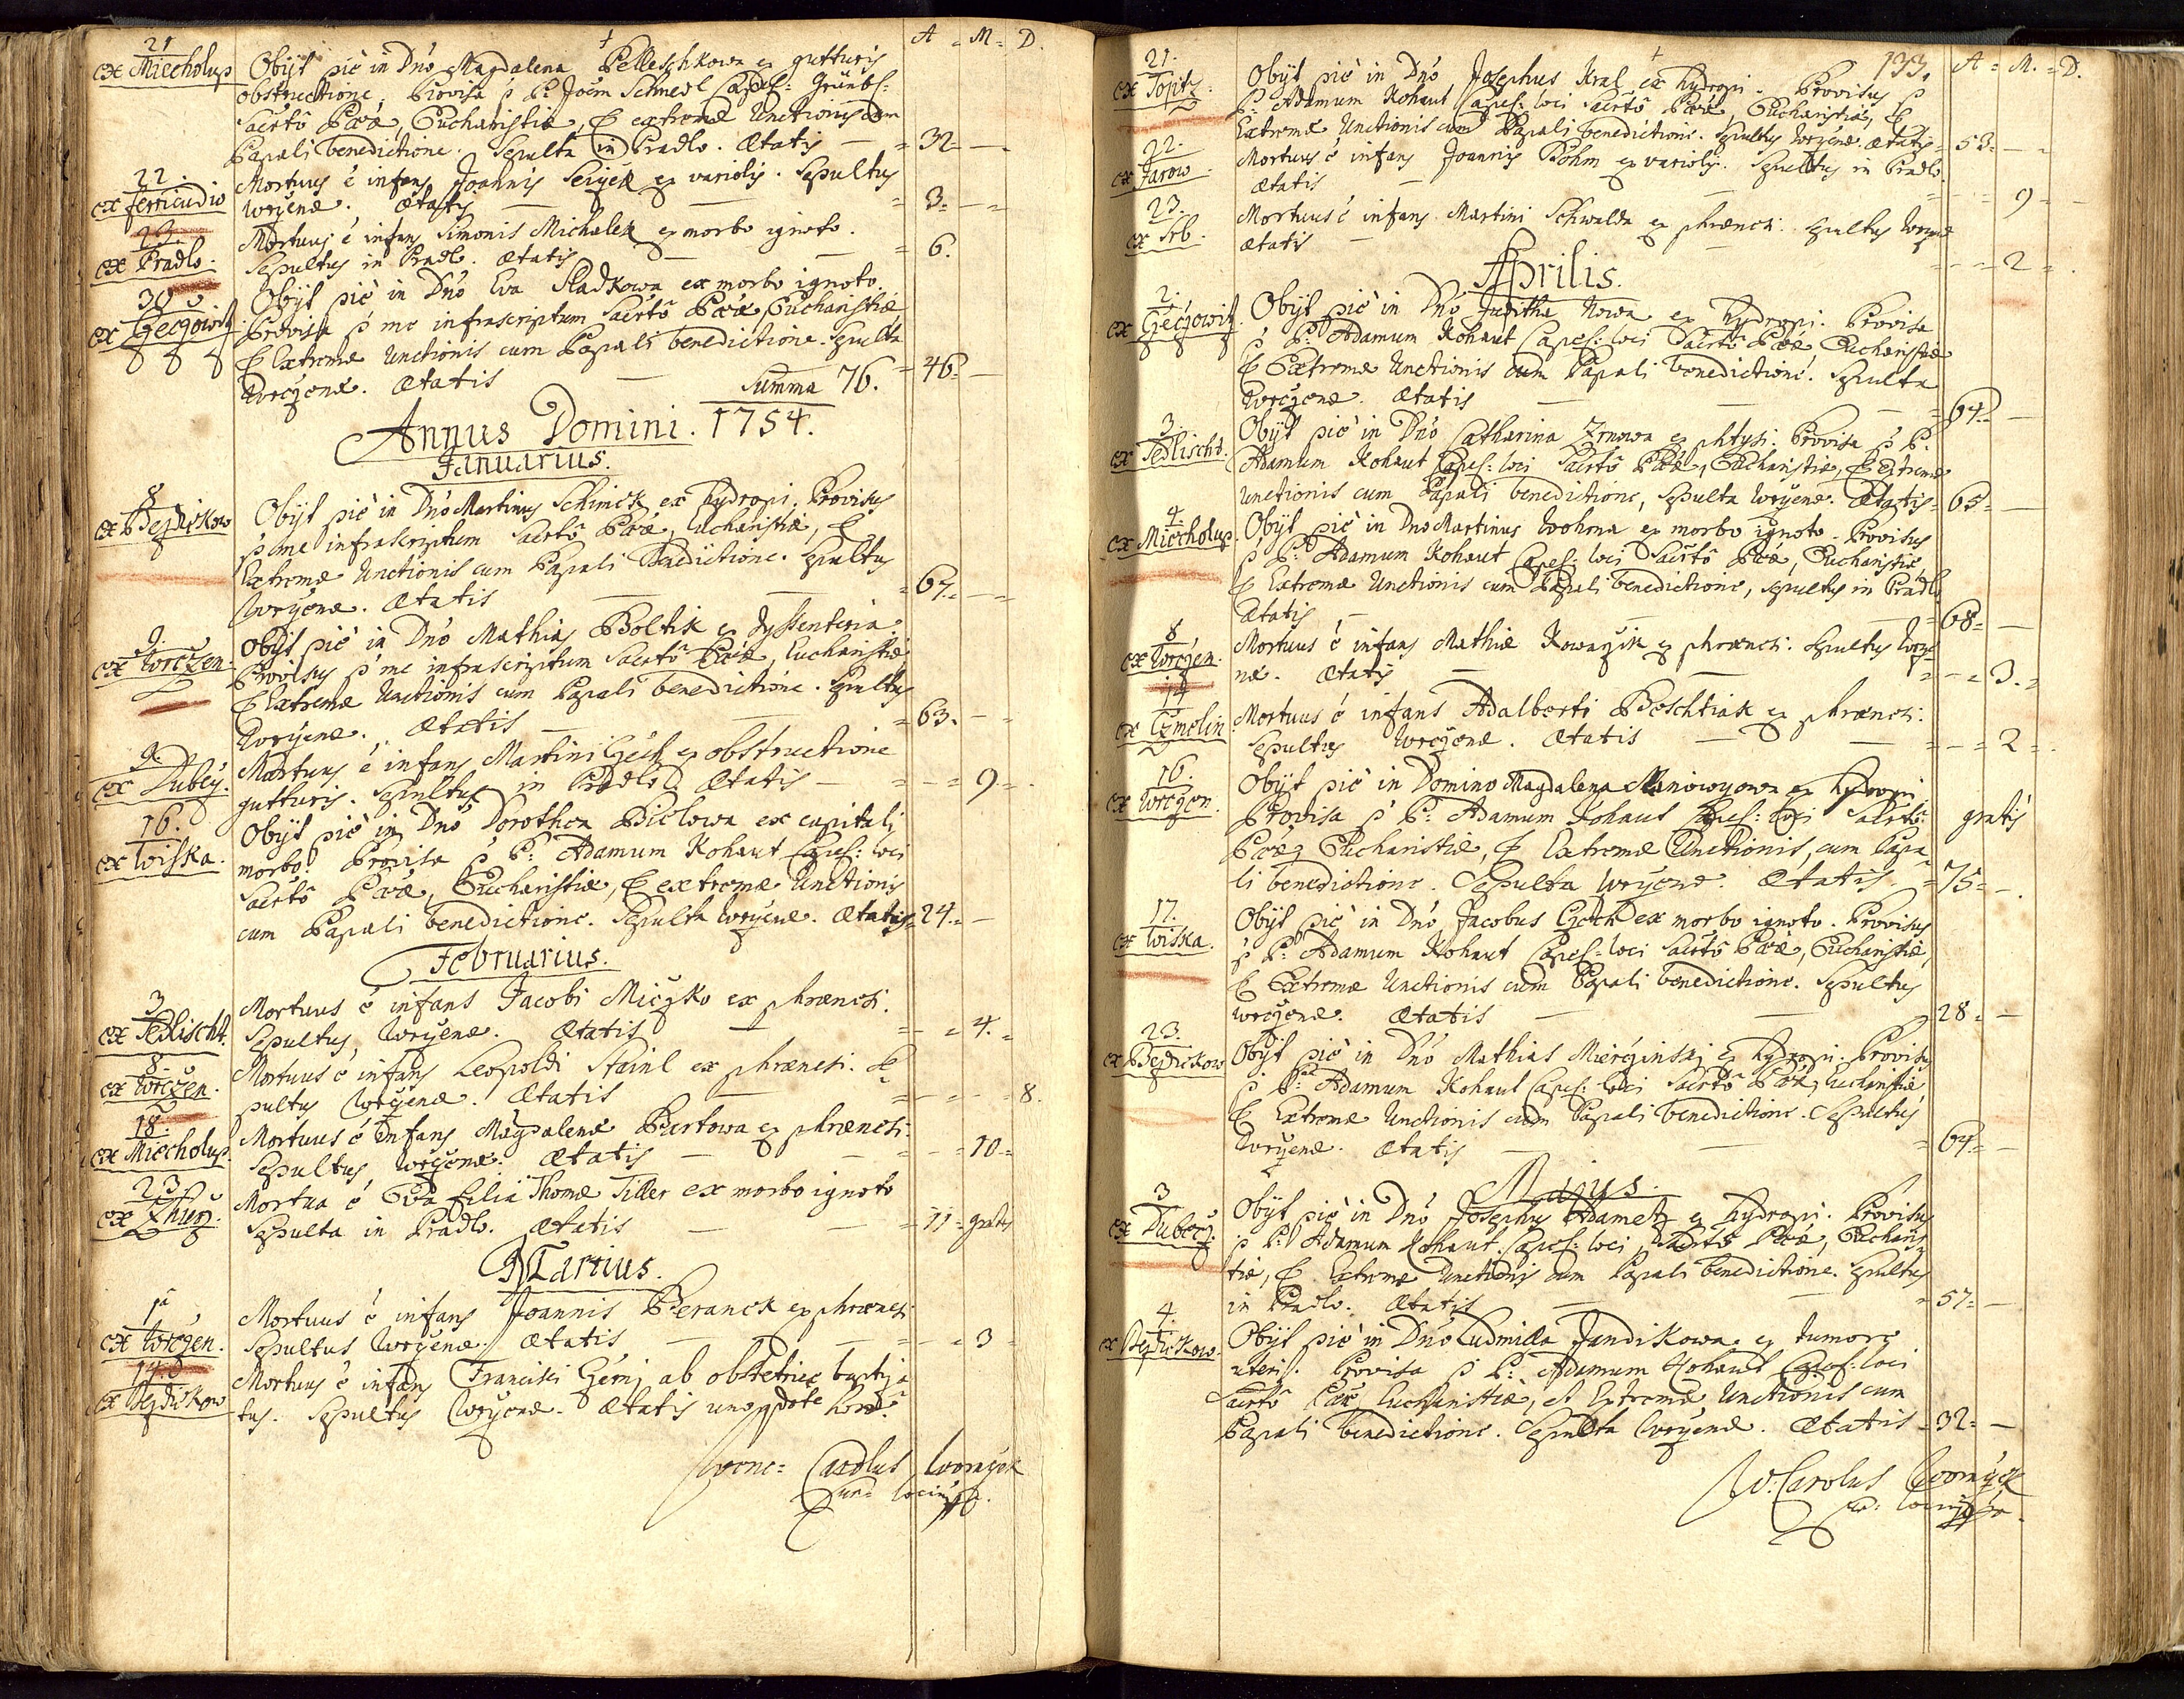 A = M = D.
21
ex Miecholup
Obijt piè in Dnō Magdalena Pelleschkowa ex gutturis
obstructione, Provisa p P. Joēm Schmedl Capel: Grünb:
Sacrtō Pœæ, Eucharistiæ, & extremæ Unctionis cum
Papali benedictione. Sepulta in Pradlo. Ætatis = 32 —
22.
Mortuus ē infans Joannis Seijck ex variolis. Sepultus
Wrčenæ. Ætatis = 3. —
23.
ex Pradlo.
Mortuus ē infans Simonis Michalek ex morbo ignoto.
Sepultus in Pradlo. Ætatis = 6.
30
ex Geczowitz
Obijt piè in Dnō Eva Sladkowa ex morbo ignoto.
Provisa p me infrascriptum Sacrtō Pœæ, Eucharistiæ
& Extremæ Unctionis cum Papali benedictione. Sepulta
Wrčzenæ. Ætatis = 46 —
Summa 76.
Annus Domini. 1754.
Januarius.
8
ex Bezdiekow
Obijt piè in Dnō Martinus Schimek ex hydropi, Provisus
p me infrascriptum Sacrtō Pœæ, Eucharistiæ, &
Extremæ Unctionis cum Papali Benedictione. Sepultus
Wrčenæ. Ætatis = 67. —
9.
ex Wrčzen.
Obijt piè in Dnō Mathias Boltik ex dyssenteria
Provisus p me infrascriptum Sacrtō Pœæ, Eucharistiæ
& Extremæ Unctionis cum Papali benedictione. Sepultus
Wrčenæ. Ætatis = 63. —
9.
ex Dubcy.
Mortuus ē infans Martini Czech ex obstructione
gutturis. Sepultus in Pradlo. Ætatis = 9 =
16.
ex Wiska.
Obijt piè in Dnō Dorothea Bielowa ex capitali
morbo. Provisa p P. Adamum Kohaut Capel: loci
Sacrtō Pœæ, Eucharistiæ, & extremæ Unctionis
cum Papali benedictione. Sepulta Wrčenæ. Ætatis = 24. —
Februarius.
3
ex Sedlischt.
Mortuus ē infans Jacobi Miczko ex phrænesi.
Sepultus Wrčenæ. Ætatis = 4. =
8.
ex Wrczen.
Mortuus ē infans Leopoldi Stainl ex phrænesi. Se=
pultus Wrčenæ. Ætatis = 8.
18.
ex Miecholup.
Mortuus ē Infans Magdalenæ Burtowa ex phrænesi.
Sepultus Wrčenæ. Ætatis = 10 =
23.
ex Zhurz.
Mortua ē Eva filia Thomæ Tiller ex morbo ignoto
Sepulta in Pradlo. Ætatis = 11 = gratis
Martius.
1ā
ex Wrčzen.
Mortuus ē infans Joannis Beranek ex phrænesi
Sepultus Wrčenæ. Ætatis = 3 =
14.
ex Bezdiekow
Mortuus ē infans Francisci Czerny ab obstetrice baptiza
tus. Sepultus Wrčenæ. Ætatis horæ
Wenc: Carolus Wornyck
Cur: loci mpp.
133.
A = M. = D.
21.
ex Topitz.
Obijt piè in Dnō Josephus Kral ex hydropi. Provisus p
P. Adamum Kohaut Capel: loci Sacrtō Pœæ, Eucharistiæ, &
Extremæ Unctionis cum Papali benedictione. Sepultus Wrčenæ. Ætatis = 53 —
22.
ex Jarow.
Mortuus ē infans Joannis Böhm ex variolis. Sepultus in Pradlo.
Ætatis = 9 =
23.
ex Srb.
Mortuus ē infans Martini Schwalda ex phrænesi. Sepultus Wrčenæ
Ætatis = 2 =
Aprilis.
2.
ex Geczowitz.
Obijt piè in Dnō Juditha Nowa ex hydropi. Provisa
p P. Adamum Kohaut Capel: loci Sacrtō Pœæ, Eucharistiæ
& Extremæ Unctionis cum Papali benedictione. Sepulta
Wrčzenæ. Ætatis = 64. —
3.
ex Sedlischt.
Obijt piè in Dnō Catharina Zrnowa ex phtysi. Provisa p P.
Adamum Kohaut Capel: loci Sacrtō Pœæ, Eucharistiæ, & Extremæ
Unctionis cum Papali benedictione, Sepulta Wrčenæ. Ætatis = 65 —
4
ex Miecholup.
Obijt piè in Dnō Martinus Wohrna ex morbo ignoto. Provisus
p P. Adamum Kohaut Capel: loci Sacrtō Pœæ, Eucharistiæ,
& Extremæ Unctionis cum Papali benedictione, Sepultus in Pradlo
Ætatis = 68 = —
8
ex Wrčzen.
Mortuus ē infans Mathiæ Kowarzik ex phrænesi. Sepultus Wrče=
næ. Ætatis = 3. =
14
ex Czmelin
Mortuus ē infans Adalberti Boschtiak ex phrænesi.
Sepultus Wrčzenæ. Ætatis = 2 =
16.
ex Wrčzen.
Obijt piè in Domino Magdalena ex hydropi
Provisa p P. Adamum Kohaut Capel: loci Sacrtō gratis
Pœæ, Eucharistiæ, & Extremæ Unctionis, cum Papa=
li benedictione. Sepulta Wrčenæ. Ætatis = 75 = —
17.
ex Wiska.
Obijt piè in Dnō Jacobus Czech ex morbo ignoto. Provisus
p P. Adamum Kohaut Capel: loci Sacrtō Pœæ, Eucharistiæ,
& Extremæ Unctionis cum Papali benedictione. Sepultus
Wrčzenæ. Ætatis 28 = —
23.
ex Bezdiekow
Obijt piè in Dnō Mathias Mierčzinskj ex hydropi. Provisus
p P. Adamum Kohaut Capel: loci Sacrtō Pœæ, Eucharistiæ
& Extremæ Unctionis cum Papali benedictione. Sepultus
Wrčenæ. Ætatis = 64 = —
Majus.
3
ex Dubecz.
Obijt piè in Dnō Josephus Adametz ex hydropi. Provisus
p P. Adamum Kohaut Capel: loci Sacrtō Pœæ, Eucharis=
tiæ, & Extremæ Unctionis cum Papali benedictione. Sepultus
in Pradlo. Ætatis = 57 = —
4.
ex Bezdiekow.
Obijt piè in Dnō Ludmilla Jandikowa ex tumore
uteri. Provisa p P. Adamum Kohaut Capel: loci
Sacrtō Pœæ Eucharistiæ, et Extremæ Unctionis cum
Papali benedictione. Sepulta Wrčenæ. Ætatis = 32 = —
W: Carolus Wornyck